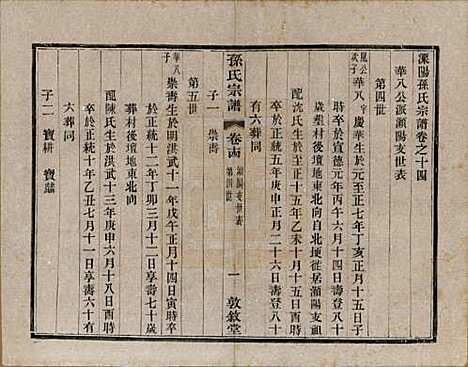 溧陽孫氏宗譜卷之十四
華八公派瀨陽支世表
第四世
晁公次子
華八 字慶華生於元至正七年丁亥正月十五日
時卒於宣德元年丙午六月十四日壽登八十
歲塟村後壇地東北向自北埂從居瀨陽支祖
配沈氏生於至正十五年乙未十月十五日酉時
卒於正統五年庚申正月二十六日壽登八十
有六葬同
子一 崇壽
孫氏宗譜
卷十四
瀨陽支世表
第四世
一
敦敘堂
第五世
華八子
崇壽生於明洪武十一年戊午正月十四日寅時卒
於正統十二年丁卯三月十二日享壽七十歲
葬村後壇地東北向
配陳氏生於洪武十三年庚申六月十八日酉時
卒於正統十年乙丑七月十一日享壽六十有
六葬同
子二 寶耕 寶